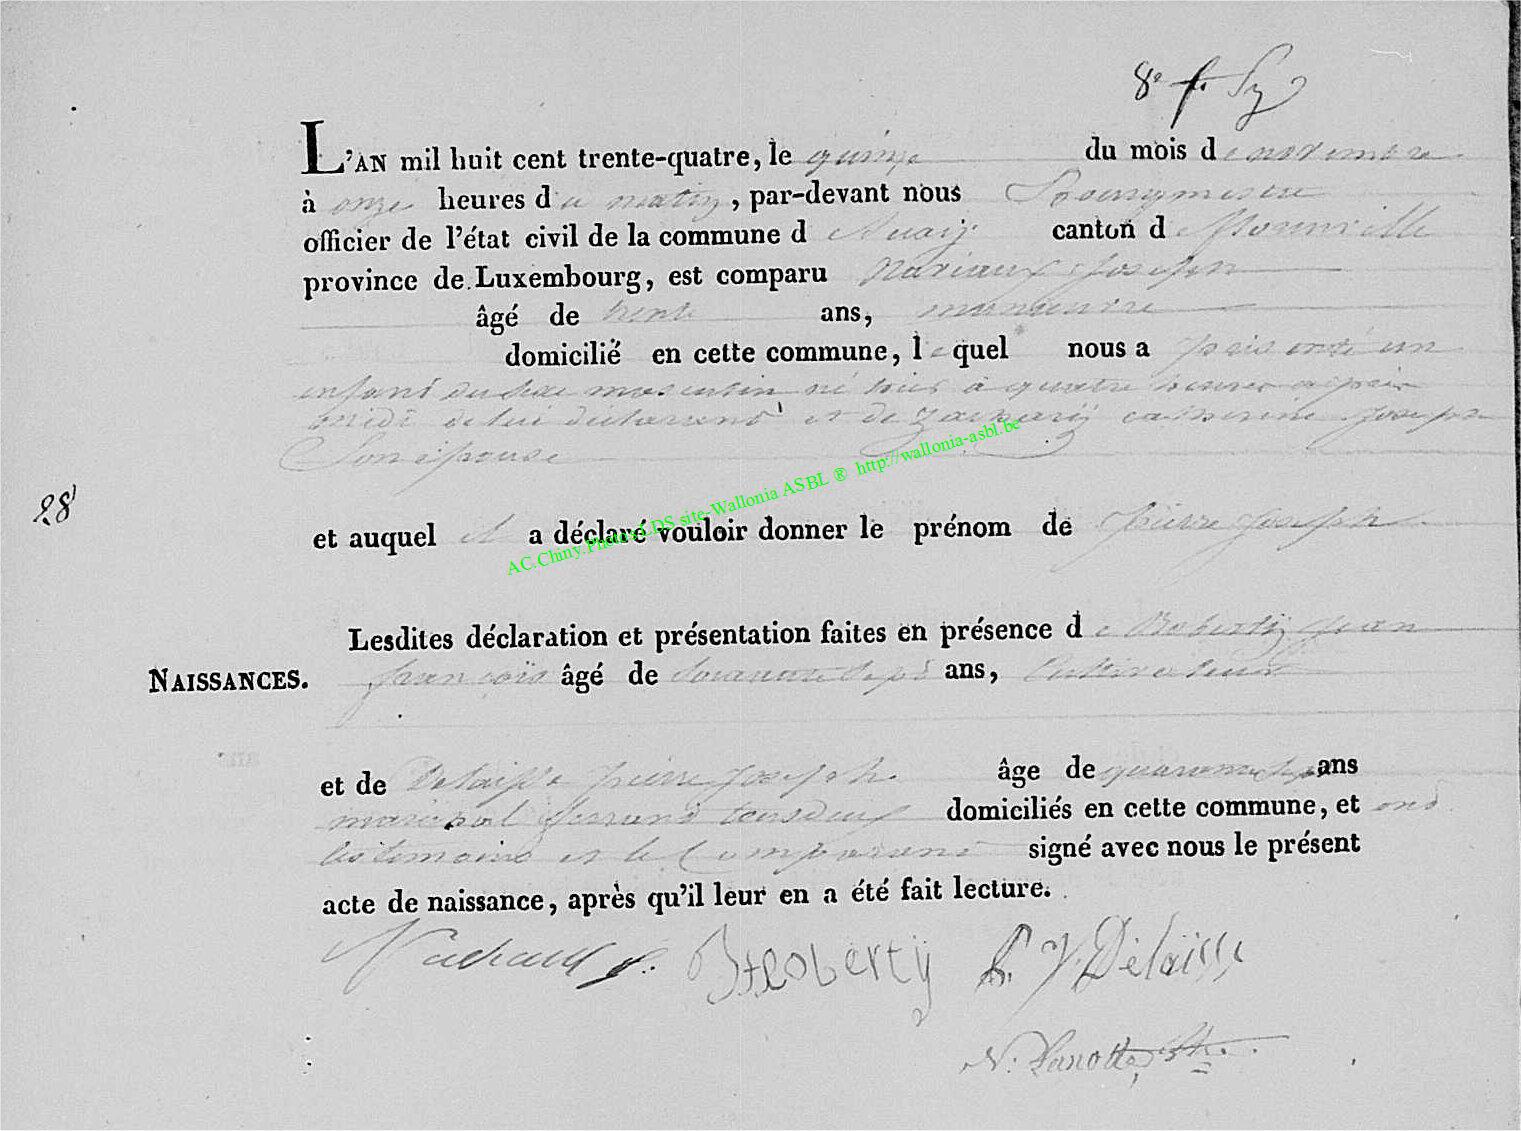 8e f. Sy
L'AN mil huit cent trente-quatre, le quinze du mois de novembre
à onze heures du matin, par-devant nous Bourgmestre
officier de l'état civil de la commune d canton de
province de Luxembourg, est comparu Joseph
âgé de trente ans, manœuvre
domicilié en cette commune, lequel nous a présenté un
enfant du sexe masculin né hier à quatre heures après
midi de lui déclarant et de catherine Joseph
Son épouse
28
et auquel il a déclaré vouloir donner le prénom de pierre Joseph
Lesdites déclaration et présentation faites en présence de Roberty Jean
NAISSANCES.
françois âgé de sept ans, Cultivateur
et de Delaisse pierre Joseph. âge de quarante ans
marechal ferrand tous deux domiciliés en cette commune, et ond
les temoins et le Comparant signé avec nous le présent
acte de naissance, après qu'il leur en a été fait lecture.
Roberty P. J. Delaisse
N.
AC.Chiny.Photos LDS site-Wallonia ASBL ® http://wallonia-asbl.be